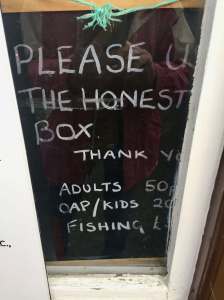 PLEASE U
THE HONEST
BOX.
THANK Y
ADULTS 50p
OAP/KIDS 20
FISHING £
C.,